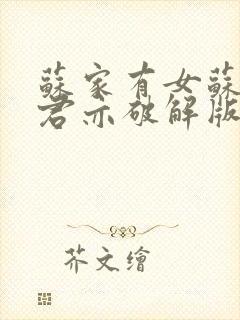 蘇家有女蘇
君亦破解版
芥文繪